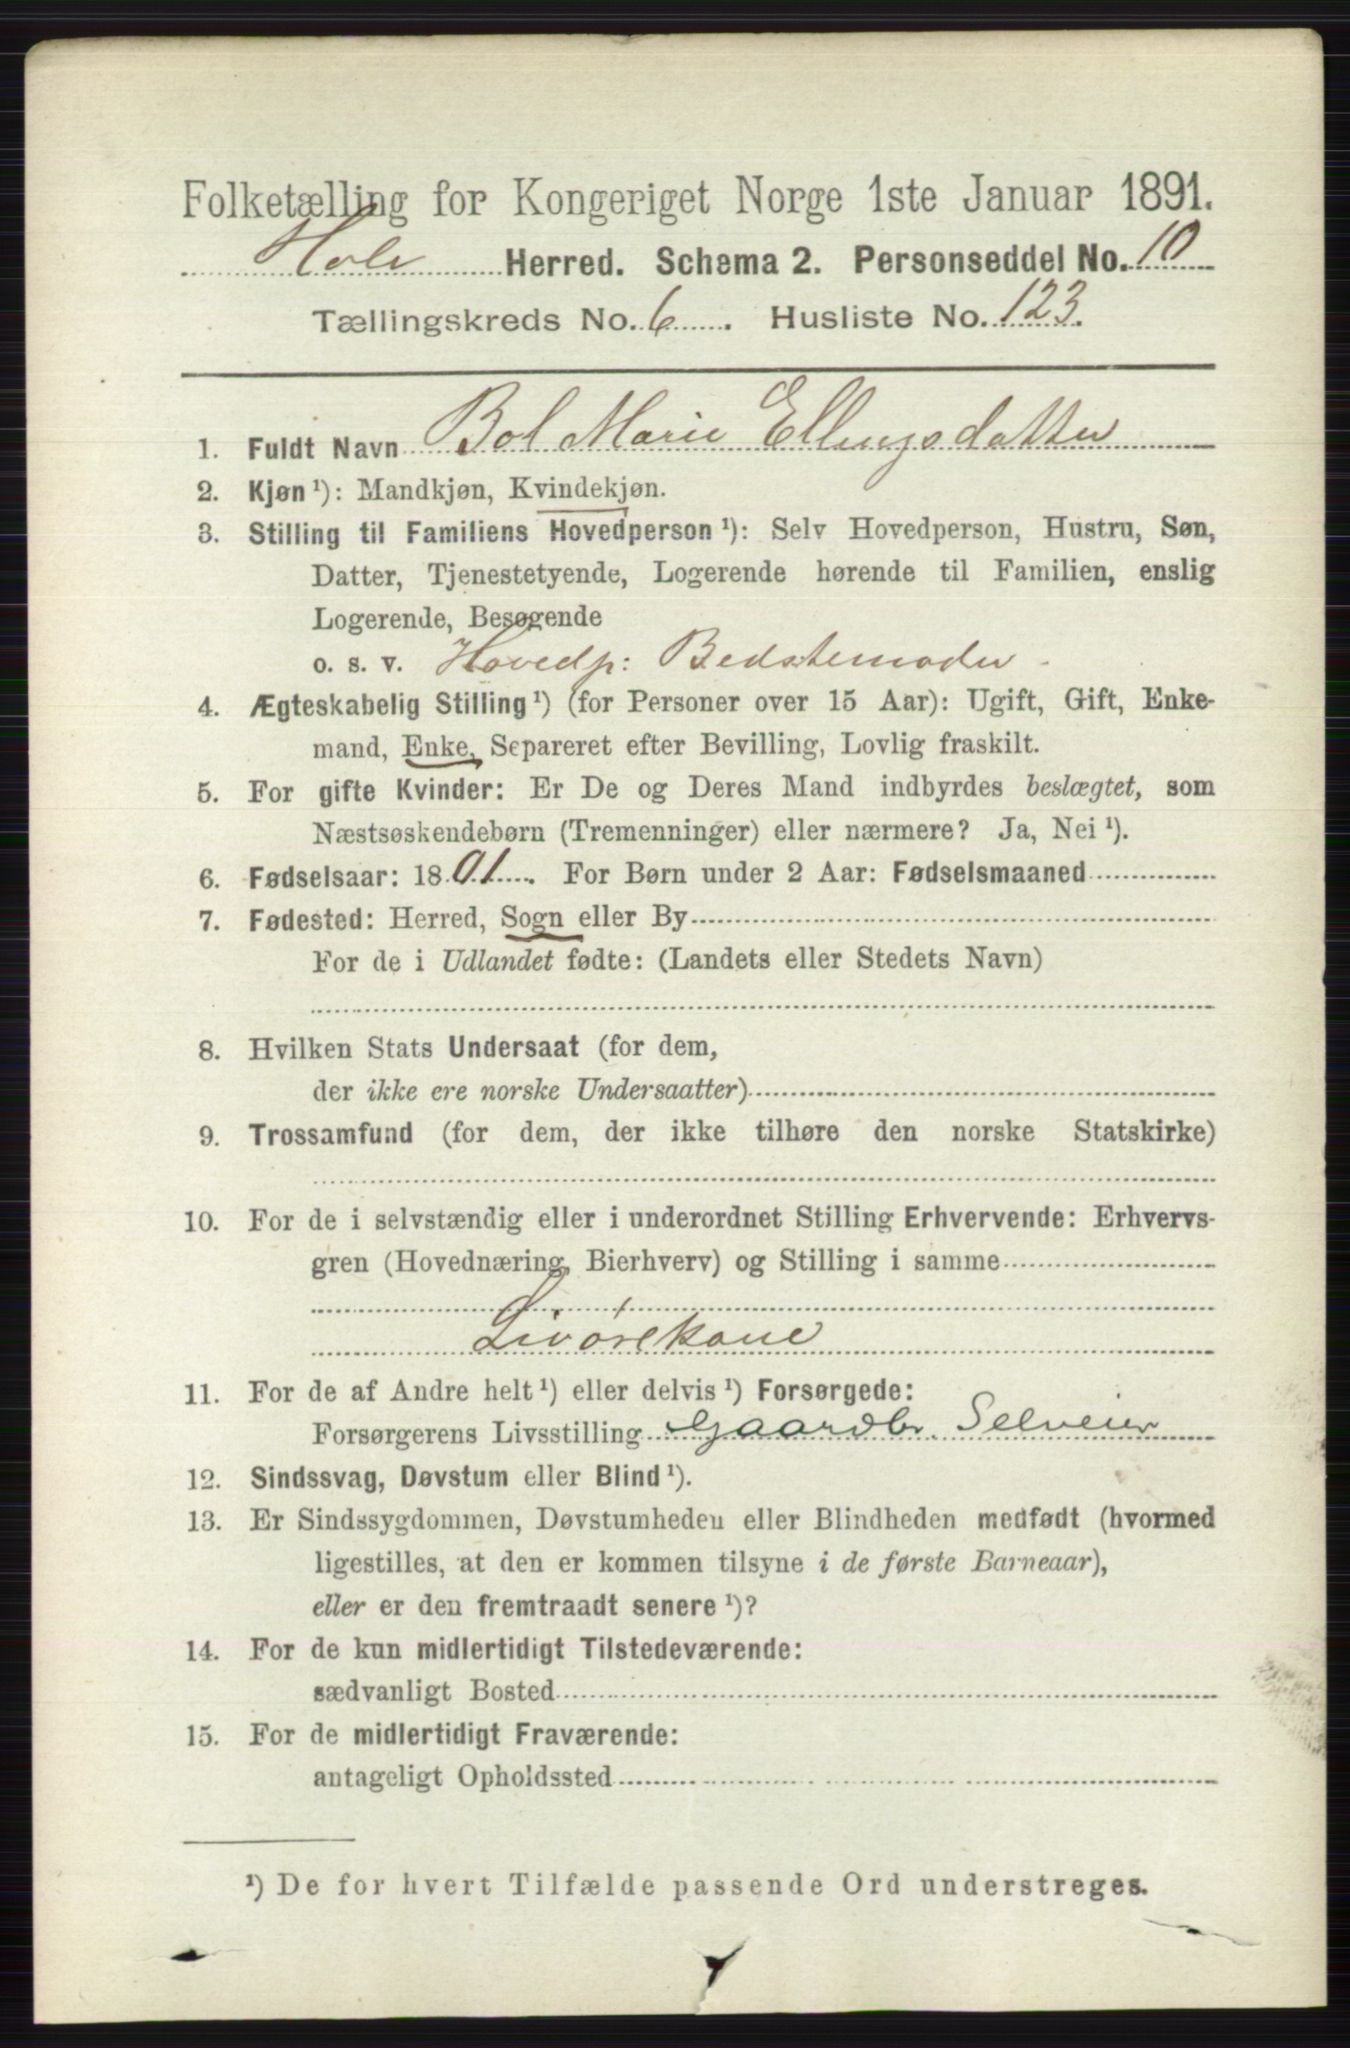 Folketælling for Kongeriget Norge 1ste Januar 1891.
Hole Herred. Schema 2. Personseddel No. 10
Tællingskreds No. 6. Husliste No. 123.
1. Fuldt Navn Bol Marie Ellingsdatter
2. Kjøn ¹): Mandkjøn, Kvindekjøn.
3. Stilling til Familiens Hovedperson ¹): Selv Hovedperson, Hustru, Søn,
Datter, Tjenestetyende, Logerende hørende til Familien, enslig
Logerende, Besøgende
o. s. v. Hovedp: Bedstemoder
4. Ægteskabelig Stilling ¹) (for Personer over 15 Aar): Ugift, Gift, Enke-
mand, Enke, Separeret efter Bevilling, Lovlig fraskilt.
5. For gifte Kvinder: Er De og Deres Mand indbyrdes beslægtet, som
Næstsøskendebørn (Tremenninger) eller nærmere? Ja, Nei ¹).
6. Fødselsaar: 1801. For Børn under 2 Aar: Fødselsmaaned
7. Fødested: Herred, Sogn eller By
For de i Udlandet fødte: (Landets eller Stedets Navn)
8. Hvilken Stats Undersaat (for dem,
der ikke ere norske Undersaatter)
9. Trossamfund (for dem, der ikke tilhøre den norske Statskirke)
10. For de i selvstændig eller i underordnet Stilling Erhvervende: Erhvervs-
gren (Hovednæring, Bierhverv) og Stilling i samme
Livørekone
11. For de af Andre helt ¹) eller delvis ¹) Forsørgede:
Forsørgerens Livsstilling Gaardbr. Selveier
12. Sindssvag, Døvstum eller Blind ¹).
13. Er Sindssygdommen, Døvstumheden eller Blindheden medfødt (hvormed
ligestilles, at den er kommen tilsyne i de første Barneaar),
eller er den fremtraadt senere ¹)?
14. For de kun midlertidigt Tilstedeværende:
sædvanligt Bosted
15. For de midlertidigt Fraværende:
antageligt Opholdssted
¹) De for hvert Tilfælde passende Ord understreges.